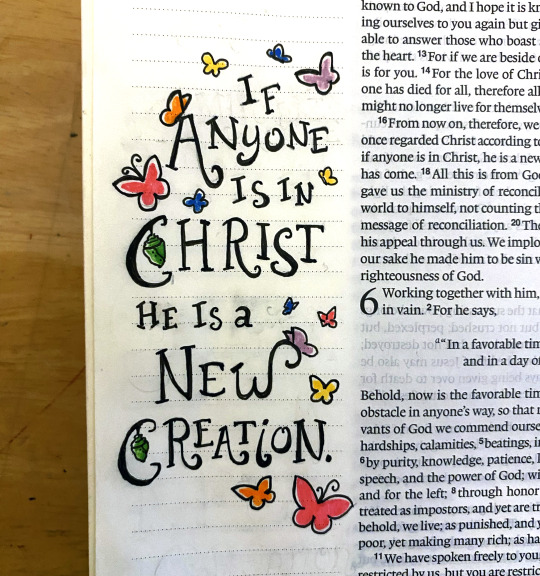 IF
ANYONE
IS IN
CHRIST
HE IS a
NEW
CREATION.
known to God, and I hope it is
ing ourselves to you again but
able to answer those who boast
the heart. 13 For if we are beside
is for you. 14 For the love of
one has died for all, therefore all
might no longer live for
16 From now on, therefore, we
once regarded Christ according to
if anyone is in Christ, he is a new
has come. 18 All this is from
gave us the ministry of
world to himself, not counting
message of reconciliation. 20
his appeal through us. We
our sake he made him to be sin
righteousness of God.
6 Working together with him,
in vain. 2 For he says,
"In a favorable
and in a day of
Behold, now is the favorable
obstacle in anyone's way, so that
vants of God we commend
hardships, calamities, 5 beatings,
6 by purity, knowledge, patience,
speech, and the power of God;
and for the left; 8 through honor
treated as impostors, and yet are
behold, we live; as punished, and
poor, yet making many rich; as
11 We have spoken freely to you,
restricted by us, but you are